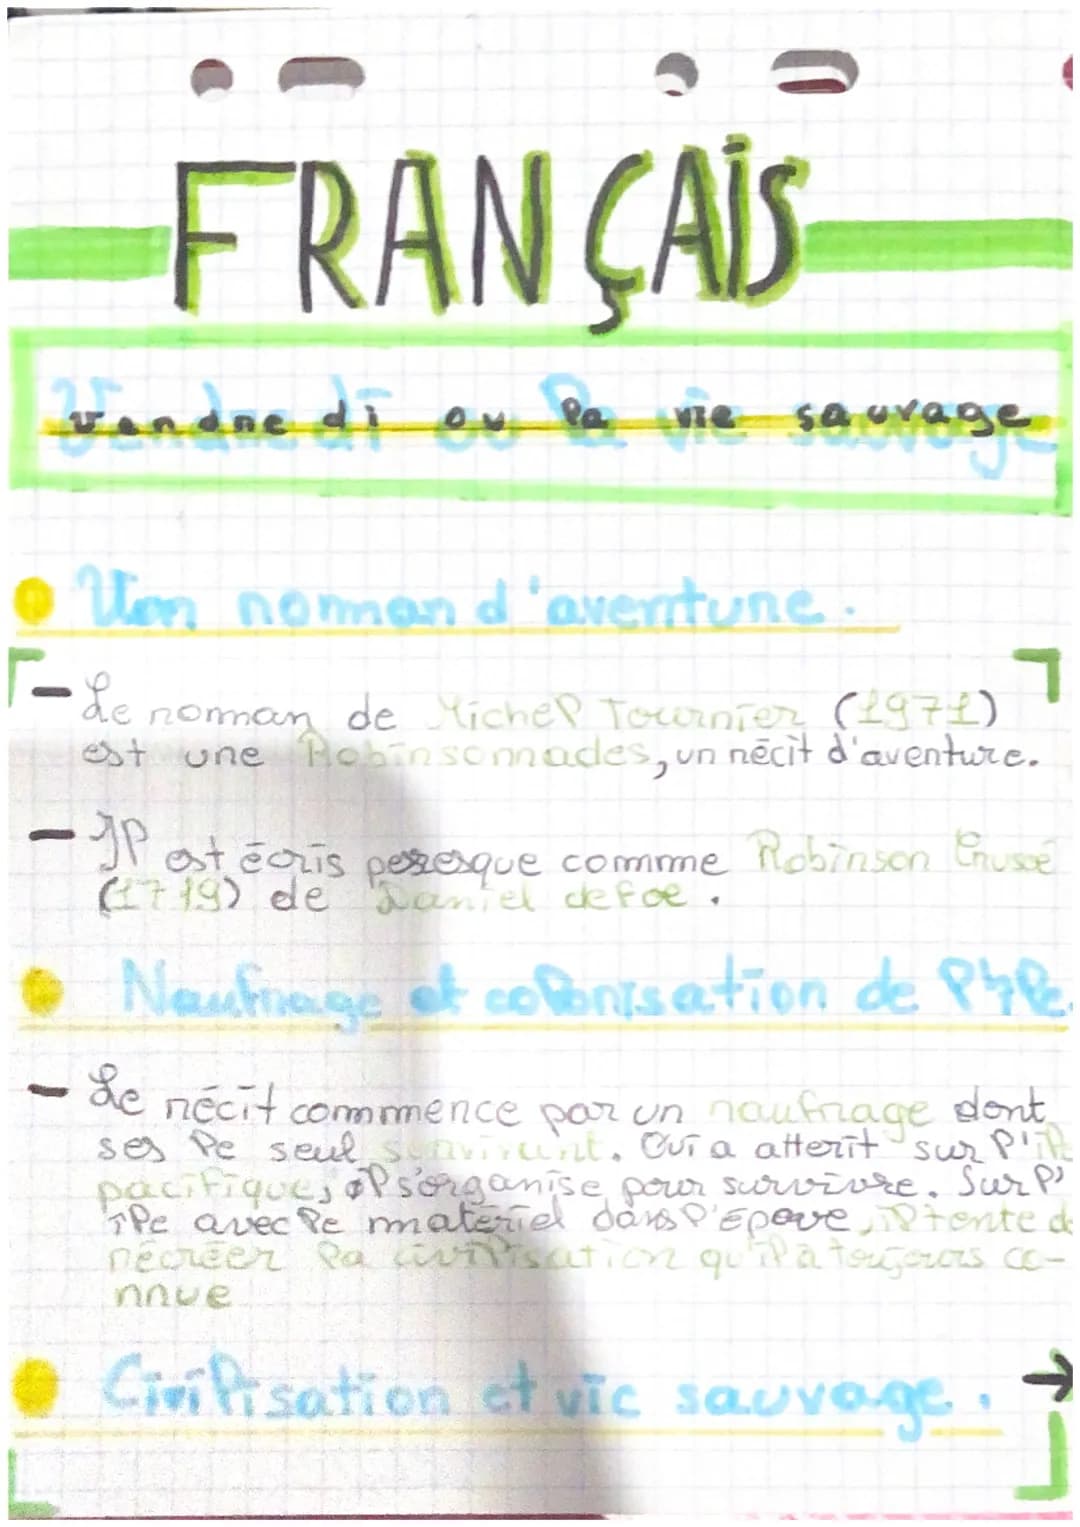 FRANÇAIS
Vendredi ou la vie sauvage
Un roman d'aventure.
- Le roman de Michel Tournier (1971)
est une Robinsonnades, un récit d'aventure.
- Il est écris presque comme Robinson Crusoé
(1719) de Daniel defoe.
Naufrage et colonisation de l'île
- Le récit commence par un naufrage dont
ses le seul survivant. Qui a atterit sur l'île
pacifique, il s'organise pour survivre. Sur l'
île avec le matériel dans l'Épave, il tente de
récréer la civilisation qu'il a toujours co-
nnue
Civilisation et vie sauvage. →